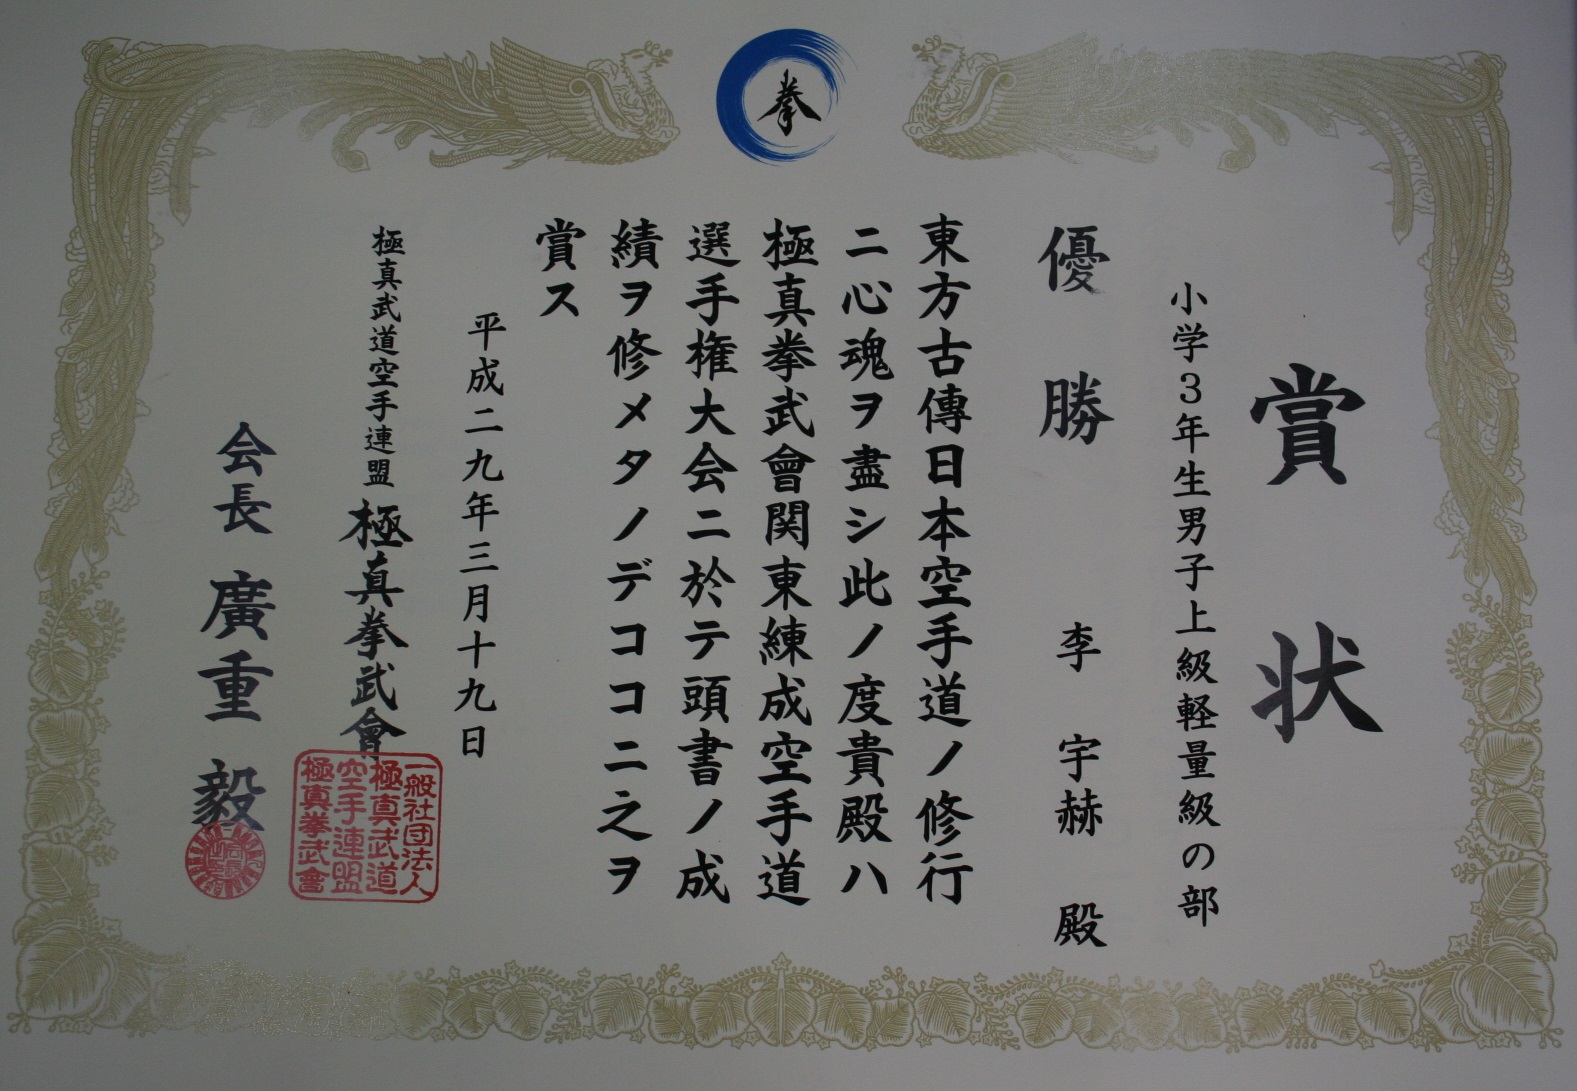 拳
賞状
小学３年生男子上級軽量級の部
優勝　李 宇赫 殿
東方古傳日本空手道ノ修行
ニ心魂ヲ盡シ此ノ度貴殿ハ
極真拳武會関東練成空手道
選手権大会ニ於テ頭書ノ成
績ヲ修メタノデココニ之ヲ
賞ス
平成二九年三月十九日
極真武道空手連盟 極真拳武會
会長 廣重 毅
一般社団法人
極真武道
空手連盟
極真拳武會